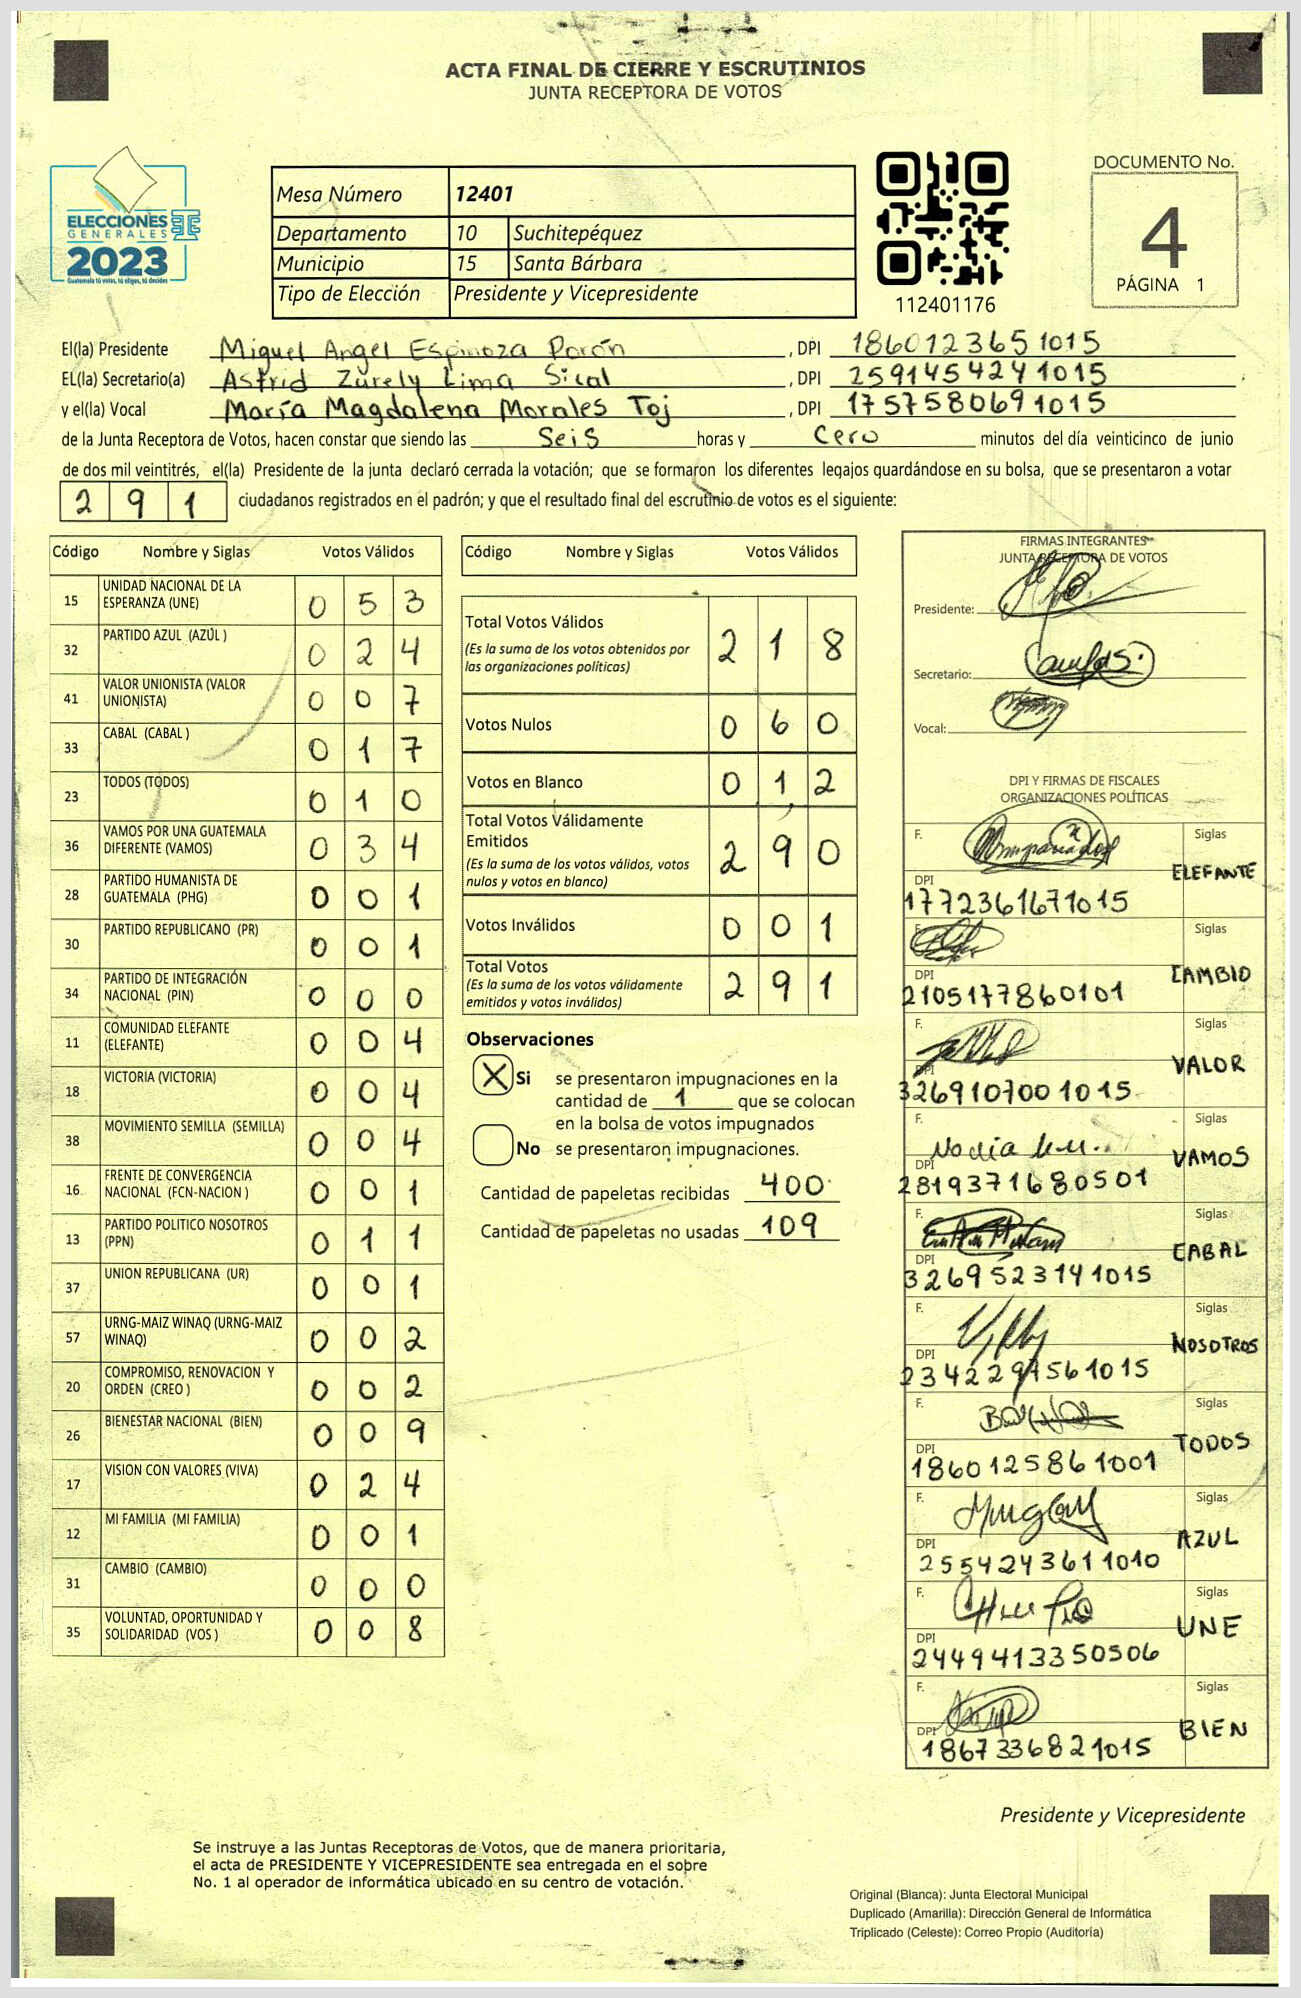 ACTA FINAL DE CIERRE Y ESCRUTINIOS
JUNTA RECEPTORA DE VOTOS
ELECCIONES
GENERALES
2023
Guatemala tú votas, tú eliges, tú decides
Mesa Número 12401
Departamento 10 Suchitepéquez
Municipio 15 Santa Bárbara
Tipo de Elección Presidente y Vicepresidente
112401176
DOCUMENTO No.
4
PÁGINA 1
El(la) Presidente Miguel Angel Espinoza Porón, DPI 186012365 1015
EL(la) Secretario(a) Astrid Zurely Lima Sical, DPI 259145424 1015
y el(la) Vocal María Magdalena Morales Toj, DPI 175758069 1015
de la Junta Receptora de Votos, hacen constar que siendo las Seis horas y Cero minutos del día veinticinco de junio
de dos mil veintitrés, el(la) Presidente de la junta declaró cerrada la votación; que se formaron los diferentes legajos guardándose en su bolsa, que se presentaron a votar
291 ciudadanos registrados en el padrón; y que el resultado final del escrutinio de votos es el siguiente:
Código Nombre y Siglas Votos Válidos
15 UNIDAD NACIONAL DE LA ESPERANZA (UNE) 0 5 3
32 PARTIDO AZUL (AZÚL ) 0 2 4
41 VALOR UNIONISTA (VALOR UNIONISTA) 0 0 7
33 CABAL (CABAL ) 0 1 7
23 TODOS (TODOS) 0 1 0
36 VAMOS POR UNA GUATEMALA DIFERENTE (VAMOS) 0 3 4
28 PARTIDO HUMANISTA DE GUATEMALA (PHG) 0 0 1
30 PARTIDO REPUBLICANO (PR) 0 0 1
34 PARTIDO DE INTEGRACIÓN NACIONAL (PIN) 0 0 0
11 COMUNIDAD ELEFANTE (ELEFANTE) 0 0 4
18 VICTORIA (VICTORIA) 0 0 4
38 MOVIMIENTO SEMILLA (SEMILLA) 0 0 4
16 FRENTE DE CONVERGENCIA NACIONAL (FCN-NACION ) 0 0 1
13 PARTIDO POLITICO NOSOTROS (PPN) 0 1 1
37 UNION REPUBLICANA (UR) 0 0 1
57 URNG-MAIZ WINAQ (URNG-MAIZ WINAQ) 0 0 2
20 COMPROMISO, RENOVACION Y ORDEN (CREO ) 0 0 2
26 BIENESTAR NACIONAL (BIEN) 0 0 9
17 VISION CON VALORES (VIVA) 0 2 4
12 MI FAMILIA (MI FAMILIA) 0 0 1
31 CAMBIO (CAMBIO) 0 0 0
35 VOLUNTAD, OPORTUNIDAD Y SOLIDARIDAD (VOS ) 0 0 8
Código Nombre y Siglas Votos Válidos
Total Votos Válidos 2 1 8
(Es la suma de los votos obtenidos por
las organizaciones políticas)
Votos Nulos 0 6 0
Votos en Blanco 0 1 2
Total Votos Válidamente
Emitidos 2 9 0
(Es la suma de los votos válidos, votos
nulos y votos en blanco)
Votos Inválidos 0 0 1
Total Votos 2 9 1
(Es la suma de los votos válidamente
emitidos y votos inválidos)
Observaciones
X Si se presentaron impugnaciones en la
cantidad de 1 que se colocan
en la bolsa de votos impugnados
No se presentaron impugnaciones.
Cantidad de papeletas recibidas 400
Cantidad de papeletas no usadas 109
FIRMAS INTEGRANTES
JUNTA RECEPTORA DE VOTOS
Presidente:
Secretario:
Vocal:
DPI Y FIRMAS DE FISCALES
ORGANIZACIONES POLÍTICAS
F. Siglas ELEFANTE
DPI 1772361671015
F. Siglas CAMBIO
DPI 2105177860101
F. Siglas VALOR
DPI 326910700 1015
F. Siglas VAMOS
DPI 2819371680501
F. Siglas CABAL
DPI 3269523141015
F. Siglas NOSOTROS
DPI
F. Siglas TODOS
DPI 1860125861001
F. Siglas AZUL
DPI 2554243611010
F. Siglas UNE
DPI 2449413350506
F. Siglas BIEN
DPI 1867336821015
Presidente y Vicepresidente
Se instruye a las Juntas Receptoras de Votos, que de manera prioritaria,
el acta de PRESIDENTE Y VICEPRESIDENTE sea entregada en el sobre
No. 1 al operador de informática ubicado en su centro de votación.
Original (Blanca): Junta Electoral Municipal
Duplicado (Amarilla): Dirección General de Informática
Triplicado (Celeste): Correo Propio (Auditoría)